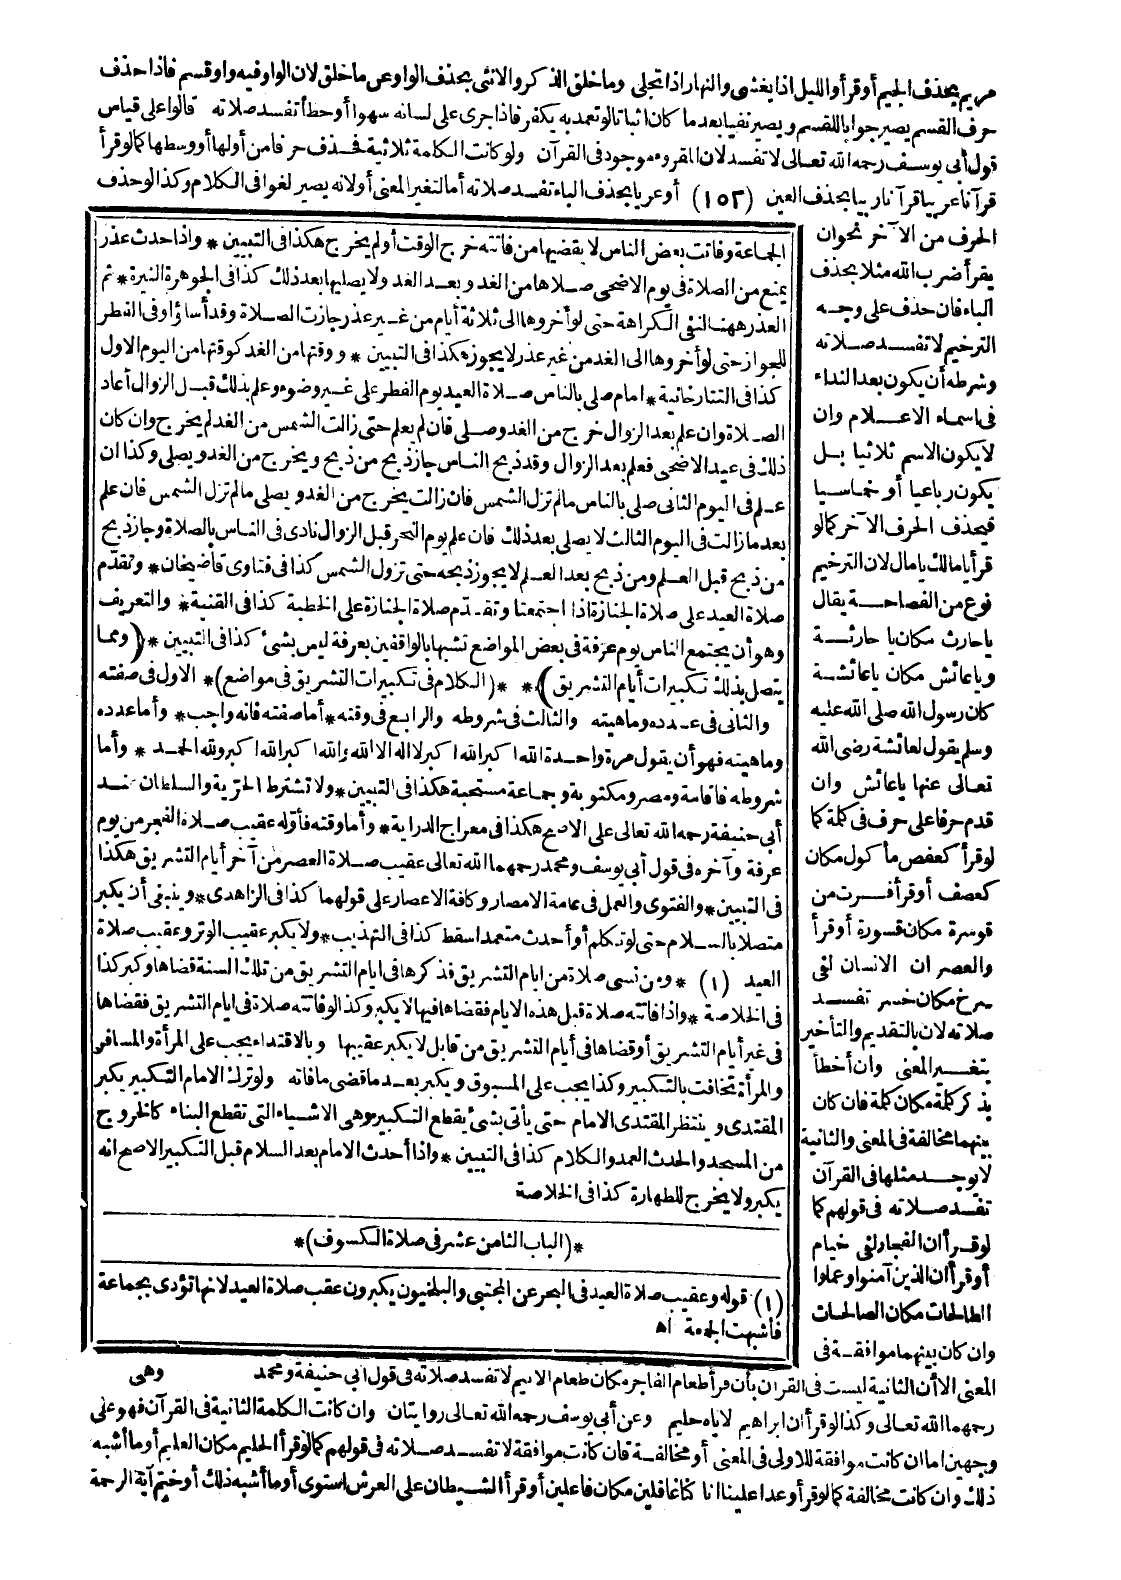 مريم بحذف الجيم أوقرأ والليل اذا يغشى والنهار اذا تجلى وما خلق الذكر والانثى بحذف الواو عن ما خلق لان الواو فيه واو قسم فاذا حذف
حرف القسم يصير جوابا للقسم ويصير نفيا بعدما كان اثباتا لو تعمد به يكفر فاذا جرى على لسانه سهوا أو خطأ تفسد صلاته قالوا على قياس
قول أبي يوسف رحمه الله تعالى لا تفسد لان المقروء موجود في القرآن ولو كانت الكلمة ثلاثية فحذف حرفا من أولها أو وسطها كما لو قرأ
قرآنا عربيا قرآنا ربيا بحذف العين (١٥٢) أو عريا بحذف الباء تفسد صلاته أما لتغير المعنى أو لانه يصير لغوا في الكلام وكذا لو حذف
الحرف من الآخر نحو ان
يقرأ ضرب الله مثلا بحذف
الباء فان حذف على وجه
الترخيم لا تفسد صلاته
وشرطه أن يكون بعد النداء
في اسماء الاعلام وان
لا يكون الاسم ثلاثيا بل
يكون رباعيا أو خماسيا
فيحذف الحرف الآخر كما لو
قرأ يا مالك يا مال لان الترخيم
نوع من الفصاحة يقال
يا حارث مكان يا حارثة
ويا عائش مكان يا عائشة
كان رسول الله صلى الله عليه
وسلم يقول لعائشة رضى الله
تعالى عنها يا عائش وان
قدم حرفا على حرف في كلمة كما
لو قرأ كعفص مأكول مكان
كعصف أو قرأ فرت من
قوسرة مكان قسورة أو قرأ
والعصر ان الانسان لفى
سرخ مكان خسر تفسد
صلاته لان بالتقديم والتأخير
يتغير المعنى وان أخطأ
بذكر كلمة مكان كلمة فان كان
بينهما مخالفة في المعنى والثانية
لا يوجد مثلها في القرآن
تفسد صلاته في قولهم كما
لو قرأ ان الفجار لفى خيام
أو قرأ ان الذين آمنوا وعملوا
الطالحات مكان الصالحات
وان كان بينهما موافقة في
الجماعة وفاتت بعض الناس لا يقضيها من فاتته خرج الوقت أو لم يخرج هكذا في التبيين * واذا حدث عذر
يمنع من الصلاة في يوم الاضحى صلاها من الغد وبعد الغد ولا يصليها بعد ذلك كذا في الجوهرة النيرة * ثم
العذر ههنا لنفى الكراهة حتى لو أخروها الى ثلاثة أيام من غير عذر جازت الصلاة وقد أساؤا وفى الفطر
للجواز حتى لو أخروها الى الغد من غير عذر لا يجوز هكذا في التبيين * ووقتها من الغد كوقتها من اليوم الاول
كذا في التتارخانية * امام صلى بالناس صلاة العيد يوم الفطر على غير وضوء وعلم بذلك قبل الزوال أعاد
الصلاة وان علم بعد الزوال خرج من الغد وصلى فان لم يعلم حتى زالت الشمس من الغد لم يخرج وان كان
ذلك في عيد الاضحى فعلم بعد الزوال وقد ذبح الناس جاز ذبح من ذبح ويخرج من الغد ويصلى وكذا ان
علم في اليوم الثانى صلى بالناس ما لم تزل الشمس فان زالت يخرج من الغد ويصلى ما لم تزل الشمس فان علم
بعد ما زالت في اليوم الثالث لا يصلى بعد ذلك فان علم يوم النحر قبل الزوال نادى في الناس بالصلاة وجاز ذبح
من ذبح قبل العلم ومن ذبح بعد العلم لا يجوز ذبحه حتى تزول الشمس كذا في فتاوى قاضيخان * وتقدّم
صلاة العيد على صلاة الجنازة اذا اجتمعتا وتقدّم صلاة الجنازة على الخطبة كذا في القنية * والتعريف
وهو أن يجتمع الناس يوم عرفة في بعض المواضع تشبها بالواقفين بعرفة ليس بشئ كذا في التبيين * (ومما
يتصل بذلك تكبيرات أيام التشريق) * * (الكلام في تكبيرات التشريق في مواضع) * الاول في صفته
والثانى في عدده وماهيته والثالث في شروطه والرابع في وقته * أما صفته فانه واجب * وأما عدده
وماهيته فهو أن يقول مرة واحدة الله اكبر الله اكبر لا اله الا الله والله اكبر الله اكبر ولله الحمد * وأما
شروطه فاقامة ومصر ومكتوبة وجماعة مستحبة هكذا في التبيين * ولا تشترط الحرّية والسلطان عند
أبي حنيفة رحمه الله تعالى على الاصح هكذا في معراج الدراية * وأما وقته فأوله عقيب صلاة الفجر من يوم
عرفة وآخره في قول أبي يوسف ومحمد رحمهما الله تعالى عقيب صلاة العصر من آخر أيام التشريق هكذا
في التبيين * والفتوى والعمل في عامة الامصار وكافة الاعصار على قولهما كذا في الزاهدى * وينبغى أن يكبر
متصلا بالسلام حتى لو تكلم أو أحدث متعمدا سقط كذا في التهذيب * ولا يكبر عقيب الوتر وعقيب صلاة
العيد (١) * ومن نسى صلاة من ايام التشريق فذكرها في ايام التشريق من تلك السنة قضاها وكبر كذا
في الخلاصة * واذا فاتته صلاة قبل هذه الايام فقضاها فيها لا يكبر وكذا لو فاتته صلاة في ايام التشريق فقضاها
في غير أيام التشريق أو قضاها في أيام التشريق من قابل لا يكبر عقيبها وبالاقتداء يجب على المرأة والمسافر
والمرأة تخافت بالتكبير وكذا يجب على المسبوق ويكبر بعد ما قضى ما فاته ولو ترك الامام التكبير يكبر
المقتدى وينتظر المقتدى الامام حتى يأتى بشئ يقطع التكبير وهى الاشياء التى تقطع البناء كالخروج
من المسجد والحدث العمد والكلام كذا في التبيين * واذا أحدث الامام بعد السلام قبل التكبير الاصح انه
يكبر ولا يخرج للطهارة كذا في الخلاصة
* (الباب الثامن عشر في صلاة الكسوف) *
(١) قوله وعقيب صلاة العيد في البحر عن المجتبى والبلخيون يكبرون عقب صلاة العيد لانها تؤدى بجماعة
فأشبهت الجمعة اه
المعنى الا أن الثانية ليست في القرآن بأن قرأ طعام الفاجر مكان طعام الاثيم لا تفسد صلاته في قول أبي حنيفة ومحمد
وهى
رحمهما الله تعالى وكذا لو قرأ ان ابراهيم لاياه حليم وعن أبي يوسف رحمه الله تعالى روايتان وان كانت الكلمة الثانية في القرآن فهو على
وجهين اما ان كانت موافقة للاولى في المعنى أو مخالفة فان كانت موافقة لا تفسد صلاته في قولهم كما لو قرأ الحليم مكان العليم أو ما أشبه
ذلك وان كانت مخالفة كما لو قرأ وعدا علينا انا كنا غافلين مكان فاعلين أو قرأ الشيطان على العرش استوى أو ما أشبه ذلك أو ختم آية الرحمة